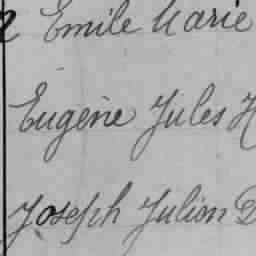 Emile Marie
Eugène Jules H
Joseph Julien D